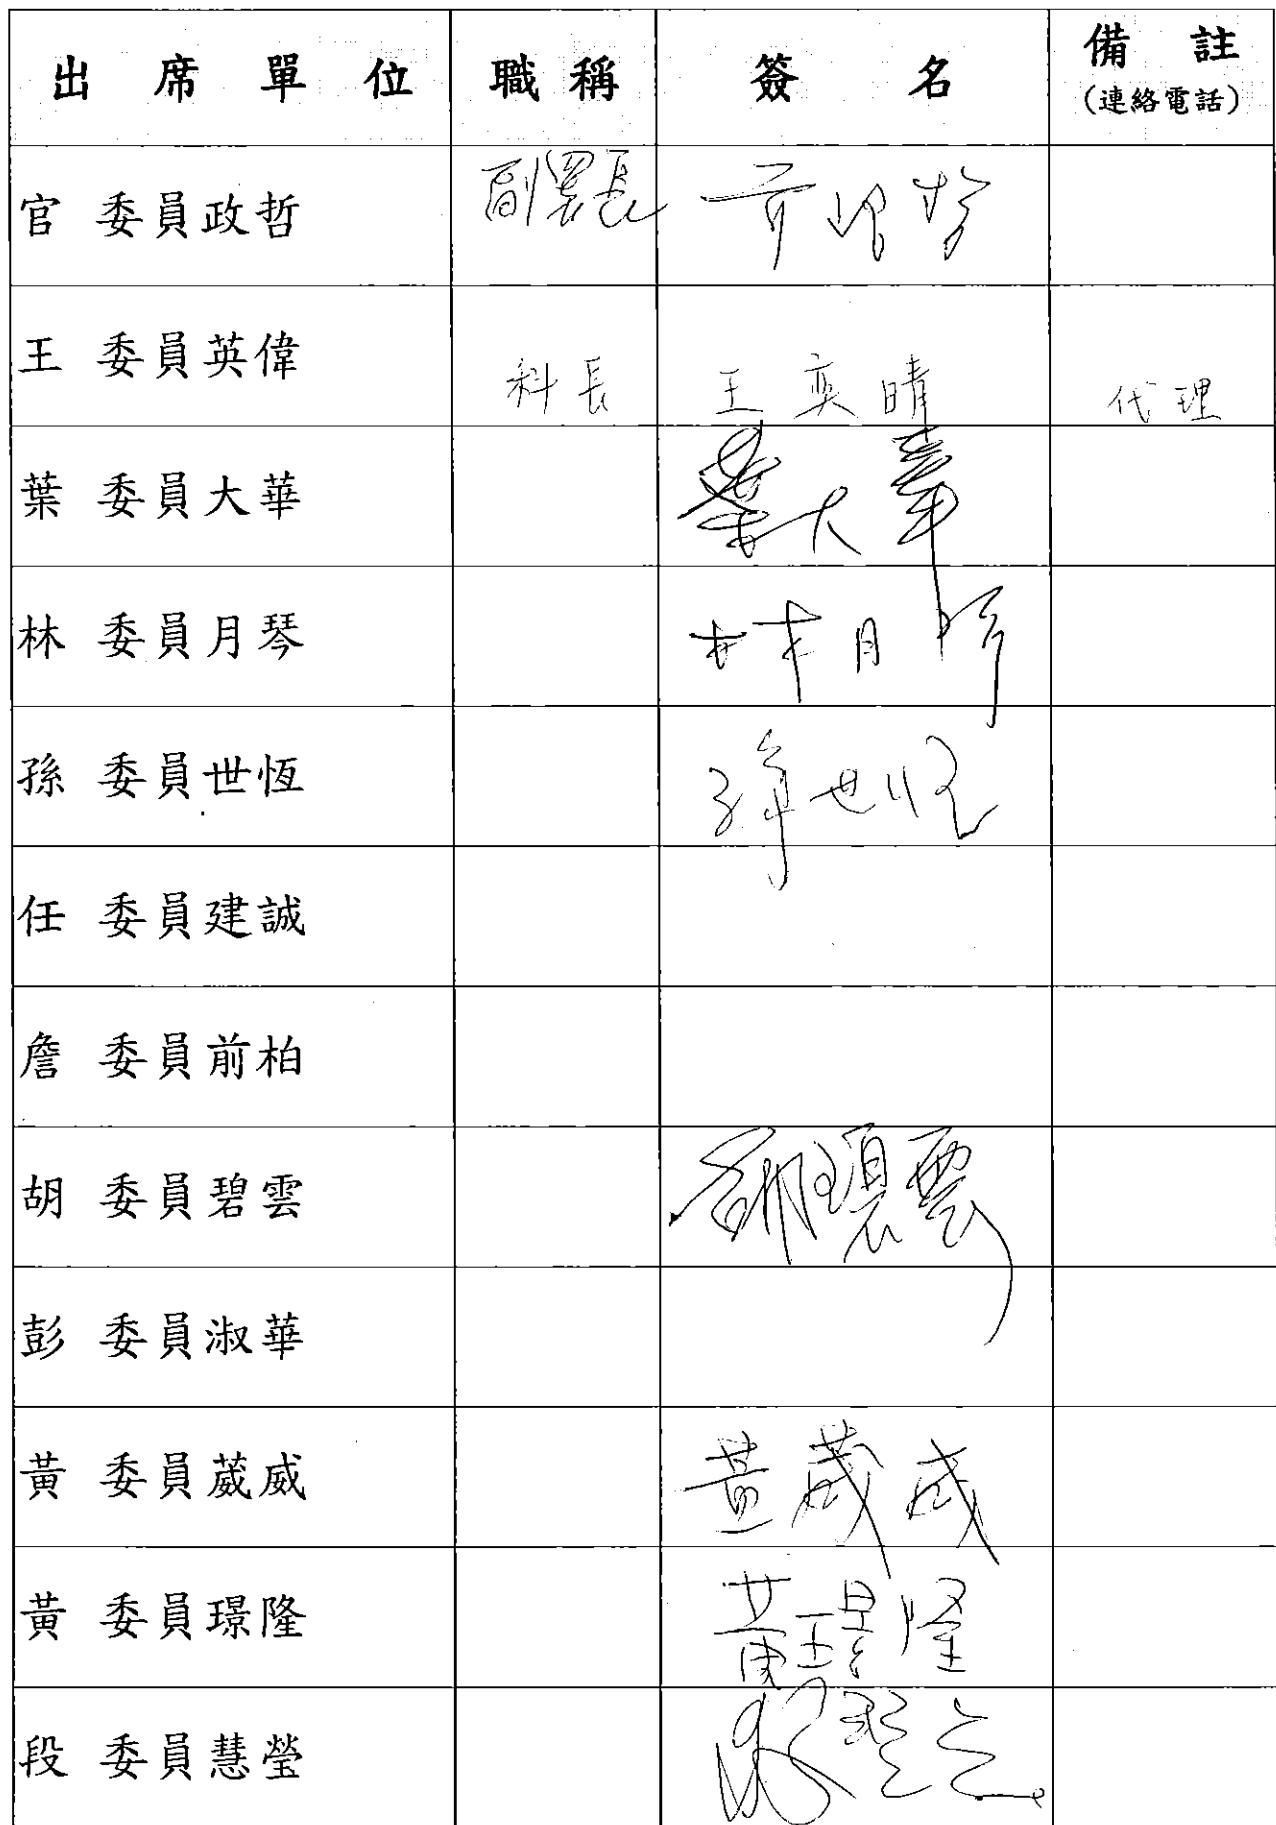 出席單位 職稱 簽名 備註
(連絡電話)
官 委員政哲 副署長
王 委員英偉 科長 王奕晴 代理
葉 委員大華 葉大華
林 委員月琴 林月琴
孫 委員世恆 孫世恆
任 委員建誠
詹 委員前柏
胡 委員碧雲
彭 委員淑華
黃 委員葳威 黃葳威
黃 委員璟隆 黃璟隆
段 委員慧瑩